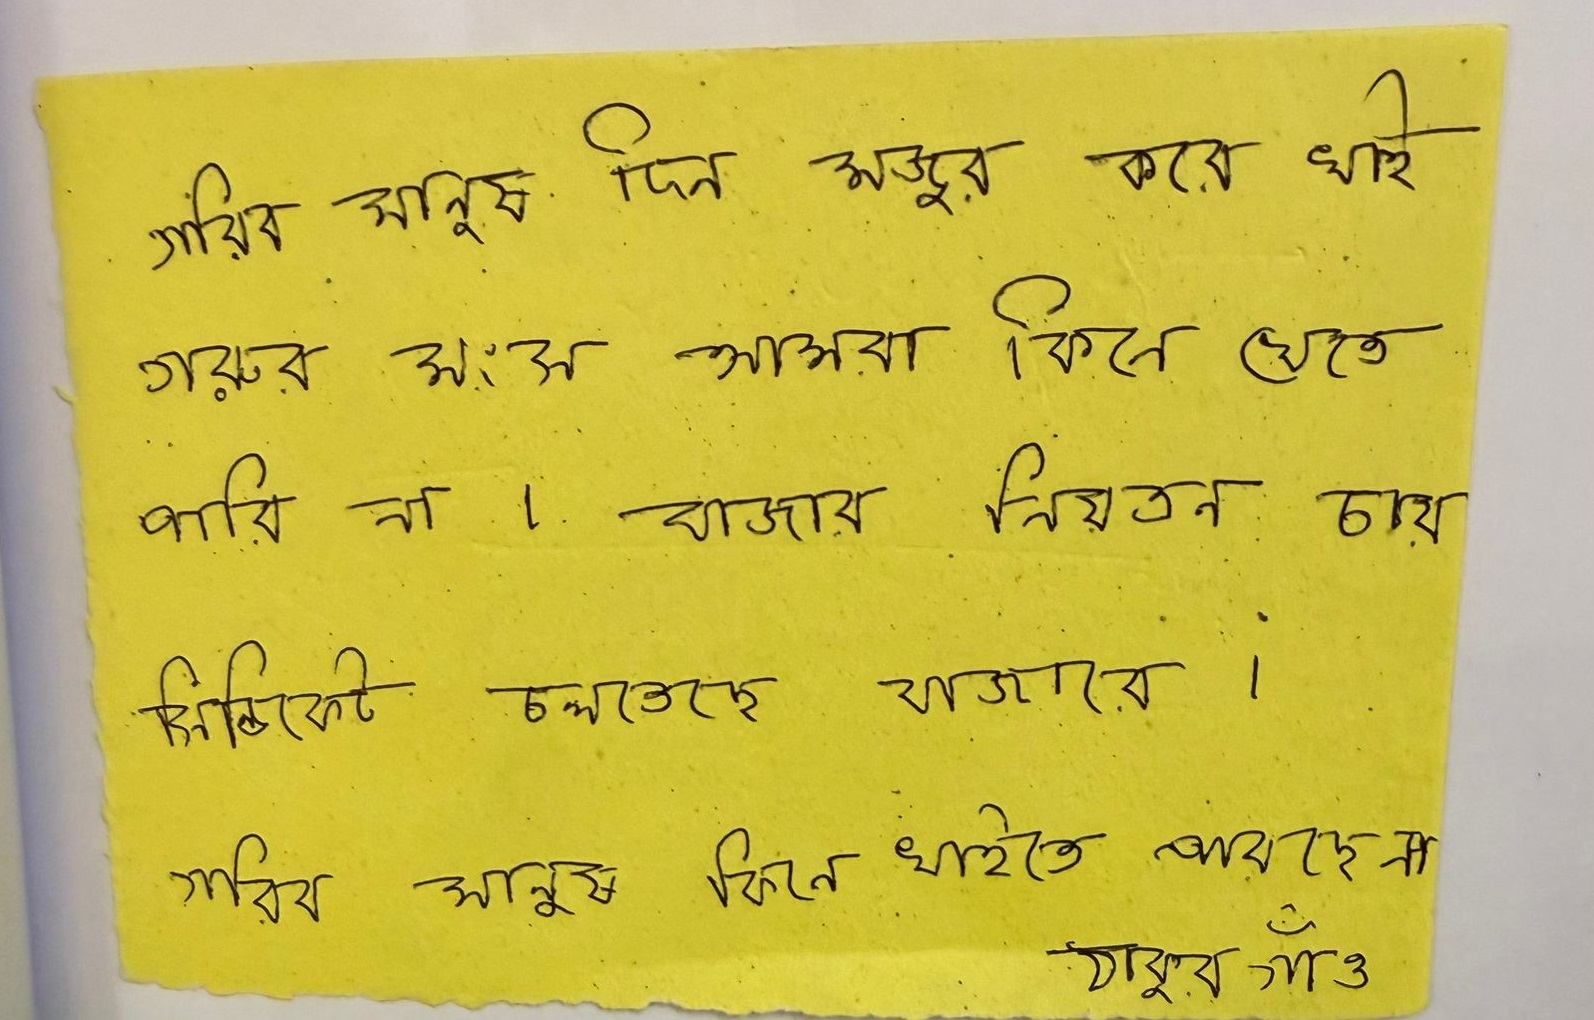 গরিব মানুষ দিন মজুর করে খাই
গরুর মংস আমরা কিনে খেতে
পারি না । বাজার নিয়তন চায়
সিন্ডিকেট চলতেছে বাজারে ।
গরিব মানুষ কিনে খাইতে পারছে না
ঠাকুর গাঁও